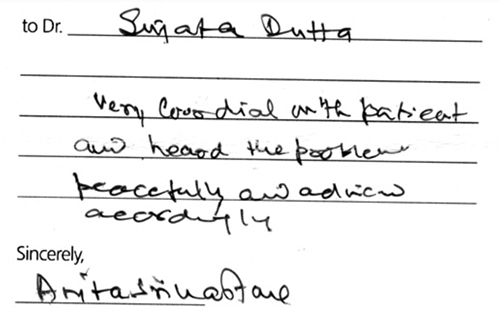 to Dr. Sujata Dutta
Very Coordial with patient
and heard the problem
peacefully and advice
accordingly
Sincerely,